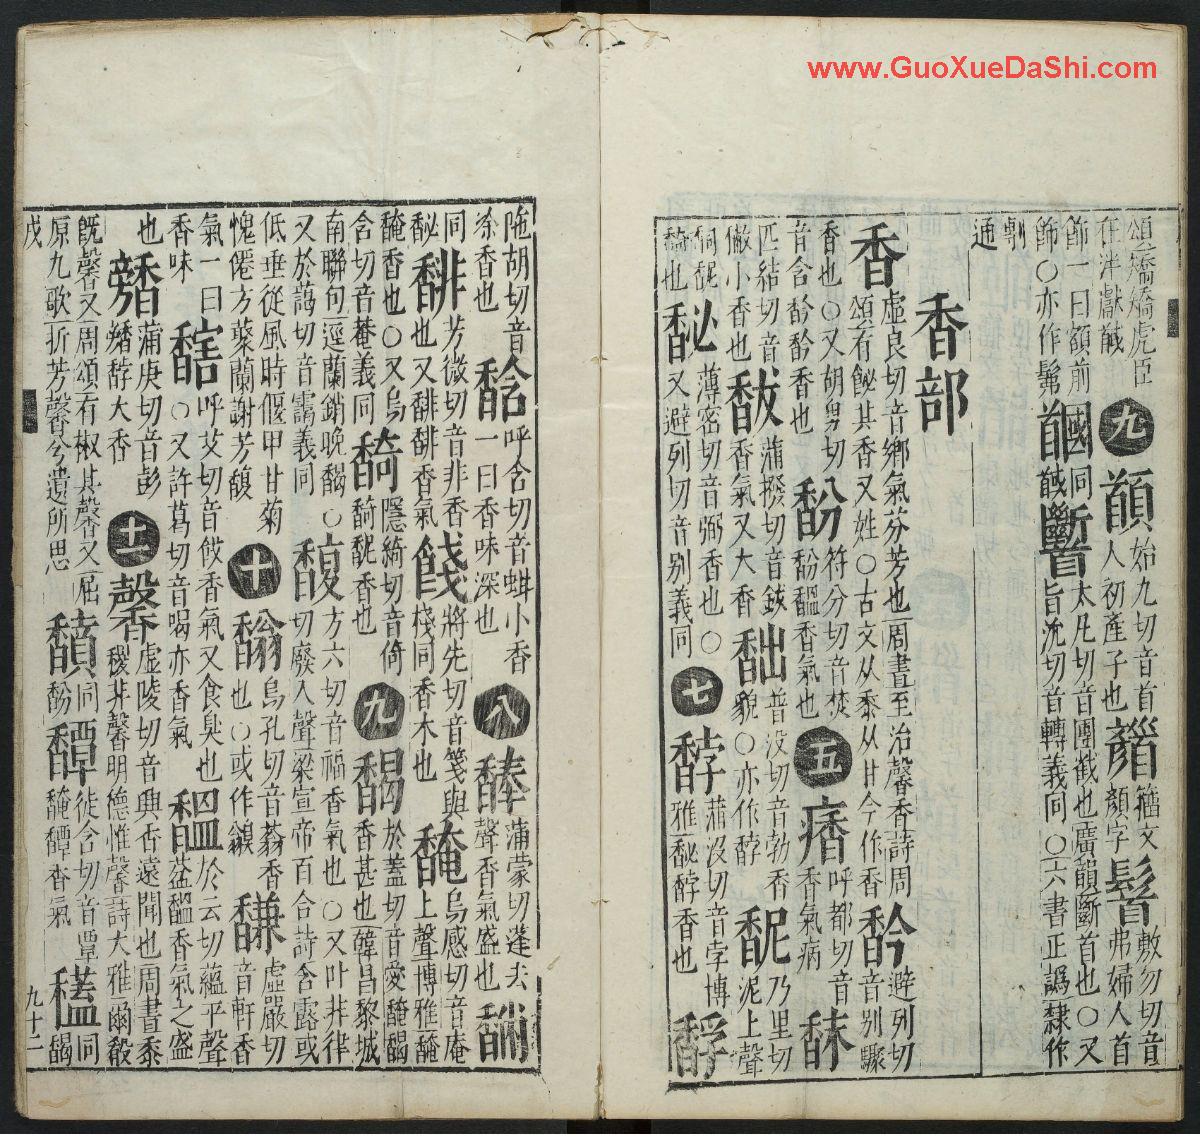 www.GuoXueDaShi.com
頌矯矯虎臣
在泮獻馘
九
始九切音首
人初產子也
籀文
顏字
敷勿切音
弗婦人首
節一曰額前
飾○亦作髴
同
馘
太凡切音團截也廣韻斷首也○又
旨沇切音轉義同○六書正譌隸作
剸
通
香部
香
虛良切音鄉氣芬芳也周書至治馨香詩周
頌有飶其香又姓○古文从黍从甘今作香
避列切
音别
香也○又胡男切
音含馠馠香也
馚
符分切音焚
馚馧香氣也
五
呼都切音
香氣病
匹結切音
小香也
馛
蒲撥切音鈸
香香氣又大香
普没切音勃香
貌○亦作馞
馜
乃里切
泥上聲
馜
也
馝
薄密切音弼香也○
又避列切音别義同
七
馞
蒲没切音孛博
雅馝馞香也
胡切音
香也
馠
呼含切音蚶小香
一曰香味深也
八
蒲蒙切蓬去
聲香氣盛也
同
馝
馡
芳微切音非香
也又馡馡香氣
馢
將先切音箋與
棧同香木也
馣
烏感切音庵
上聲博雅馣
馣香也○又烏
含切音菴義同
隱綺切音倚
馜香也
九
馤
於蓋切音愛馣馤
香甚也韓昌黎城
南聯句逕蘭銷晚馤○
又於葛切音靄義同
馥
方六切音福香氣也○又叶非律
切廢入聲梁宣帝百合詩含露或
低垂從風時偃甲甘菊
愧僊方藂蘭謝芳馥
十
烏孔切音蓊香
也○或作
馦
虛嚴切
音軒香
氣一曰
香味
呼艾切音餀香氣又食臭也
○又許葛切音喝亦香氣
馧
於云切蘊平聲
馧香氣之盛
也
蒲庚切音彭
馞大香
十一
馨
虛陵切音興香遠聞也周書黍
稷非馨明德惟馨詩大雅爾殽
既馨又周頌有椒其馨又屈
原九歌折芳馨兮遺所思
馩
同
馚
徒含切音覃
馣香氣
同
馤
戌
九十二